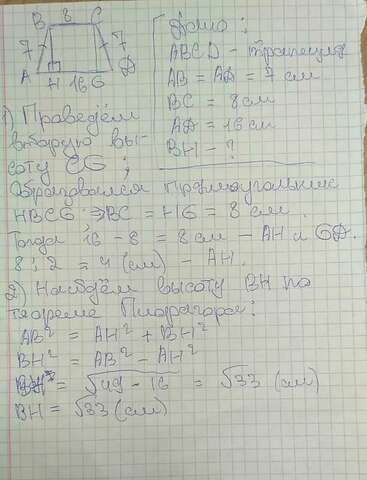 B 8 C
7 7
A H 16 G D
Дано:
ABCD - трапеция
AB = AD = 7 см
BC = 8 см
AD = 16 см
BH - ?
1) Проведём
вторую вы-
соту CG;
Образовался прямоугольник
HBCG ⇒ BC = HG = 8 см.
Тогда 16 - 8 = 8 см - AH и GD.
8 : 2 = 4 (см) - AH.
2) Найдём высоту BH по
теореме Пифагора:
AB² = AH² + BH²
BH² = AB² - AH²
BH² = √49 - 16 = √33 (см)
BH = √33 (см)